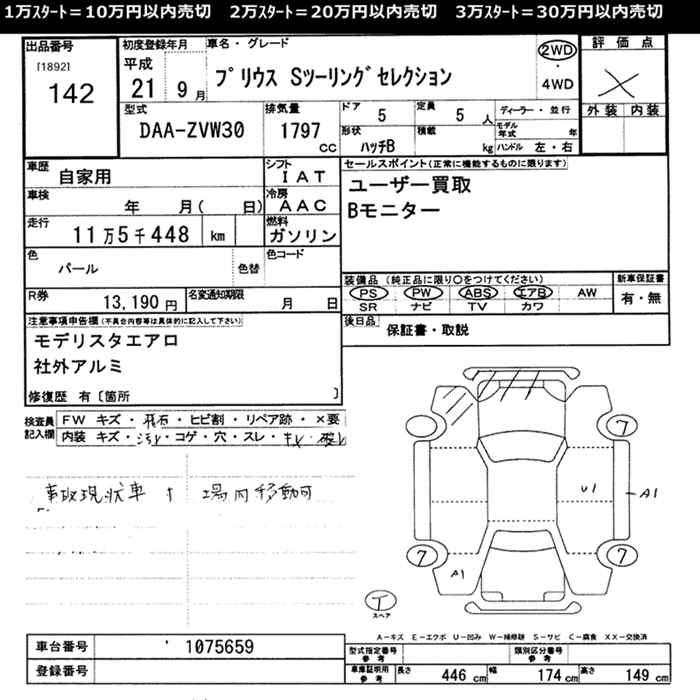 1万ｽﾀｰﾄ＝10万円以内売切　2万ｽﾀｰﾄ＝20万円以内売切　3万ｽﾀｰﾄ＝30万円以内売切
出品番号
[1892]
142
初度登録年月
平成
21 9月
車名・グレード
プリウス Sツーリングセレクション
2WD
・
4WD
評価点
×
外装 内装
型式
DAA-ZVW30
排気量
1797
cc
ドア 5
定員 5人
ディーラー・並行
モデル年式 年
形状 ハッチB
積載 kg
ハンドル 左・右
車歴
自家用
シフト
IAT
車検
年 月( 日)
冷房
AAC
走行
11万5千448 km
燃料
ガソリン
色
パール
色替
色コード
R券
13,190円
名変通知期限
月 日
セールスポイント(正常に機能するものに限ります)
ユーザー買取
Bモニター
装備品 (純正品に限り○をつけてください)
PS PW ABS エアB AW
SR ナビ TV カワ
新車保証書
有・無
後日品
保証書・取説
注意事項申告欄(不具合内容等は具体的に記入して下さい)
モデリスタエアロ
社外アルミ
修復歴 有〔箇所 〕
検査員記入欄
FW キズ・飛石・ヒビ割・リペア跡・×要
内装 キズ・汚レ・コゲ・穴・スレ・キレ・破レ
事故現状車 場内移動可
7
U1
A1
7
7
A1
T
スペア
A－キズ E－エクボ U－凹み W－補修跡 S－サビ C－腐食 XX－交換済
車台番号
' 1075659
登録番号
型式指定番号
参考
類別区分番号
参考
車庫証明用
参考
長さ 446 cm 幅 174 cm 高さ 149 cm